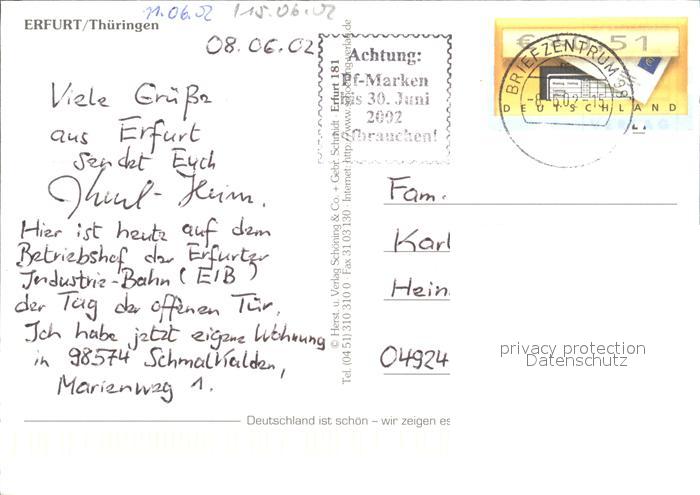 11.06.02 15.06.02
ERFURT/Thüringen
08.06.02
Viele Grüße
aus Erfurt
sendet Euch
Hier ist heute auf dem
Betriebshof der Erfurter
Industrie-Bahn (EIB)
der Tag der offenen Tür.
Ich habe jetzt eigene Wohnung
in 98574 Schmalkalden,
Marienweg 1.
Deutschland ist schön – wir zeigen es
© Herst. u. Verlag Schöning & Co. + Gebr. Schmidt · Erfurt 181
Tel. (04 51) 310 310 0 · Fax 31 03 130 · Internet: http://www.schoening-verlag.de
Achtung:
Pf-Marken
bis 30. Juni
2002
aufbrauchen!
€ 51
DEUTSCHLAND
BRIEFZENTRUM 98
Fam.
Karl
Hein
04924
privacy protection
Datenschutz